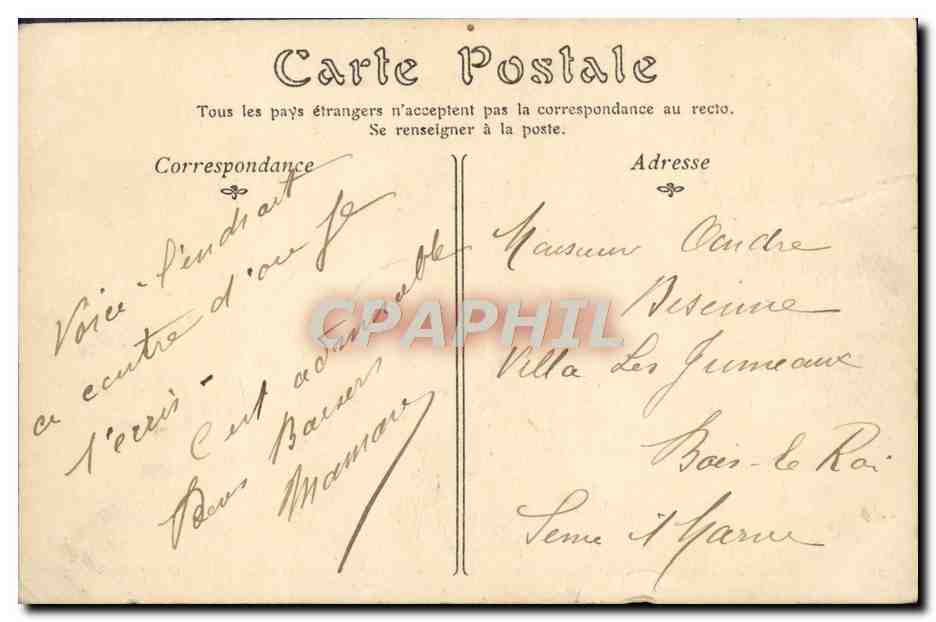 Carte Postale
Tous les pays étrangers n'acceptent pas la correspondance au recto.
Se renseigner à la poste.
Correspondance
Voici l'endroit
ce centre d'où je
t'écris -
C'est admirable
Bons Baisers
Maman
Adresse
Monsieur André
Villa Les Jumeaux
Bois-le Roi
Seine et Marne
CPAPHIL